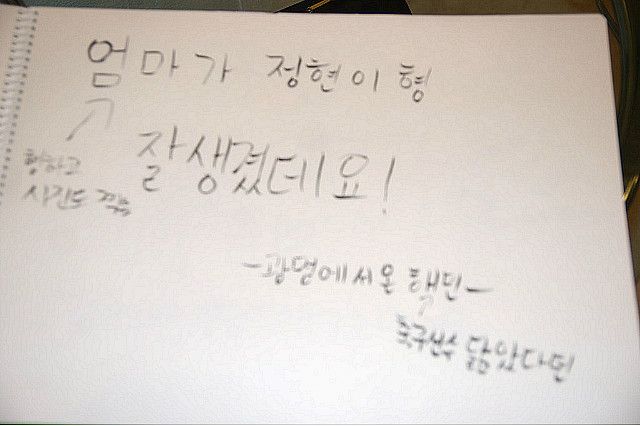 엄마가 정현이 형
잘생겼데요!
형하고
사진도 찍음
-광명에서온 팩민-
축구선수 닮았다던